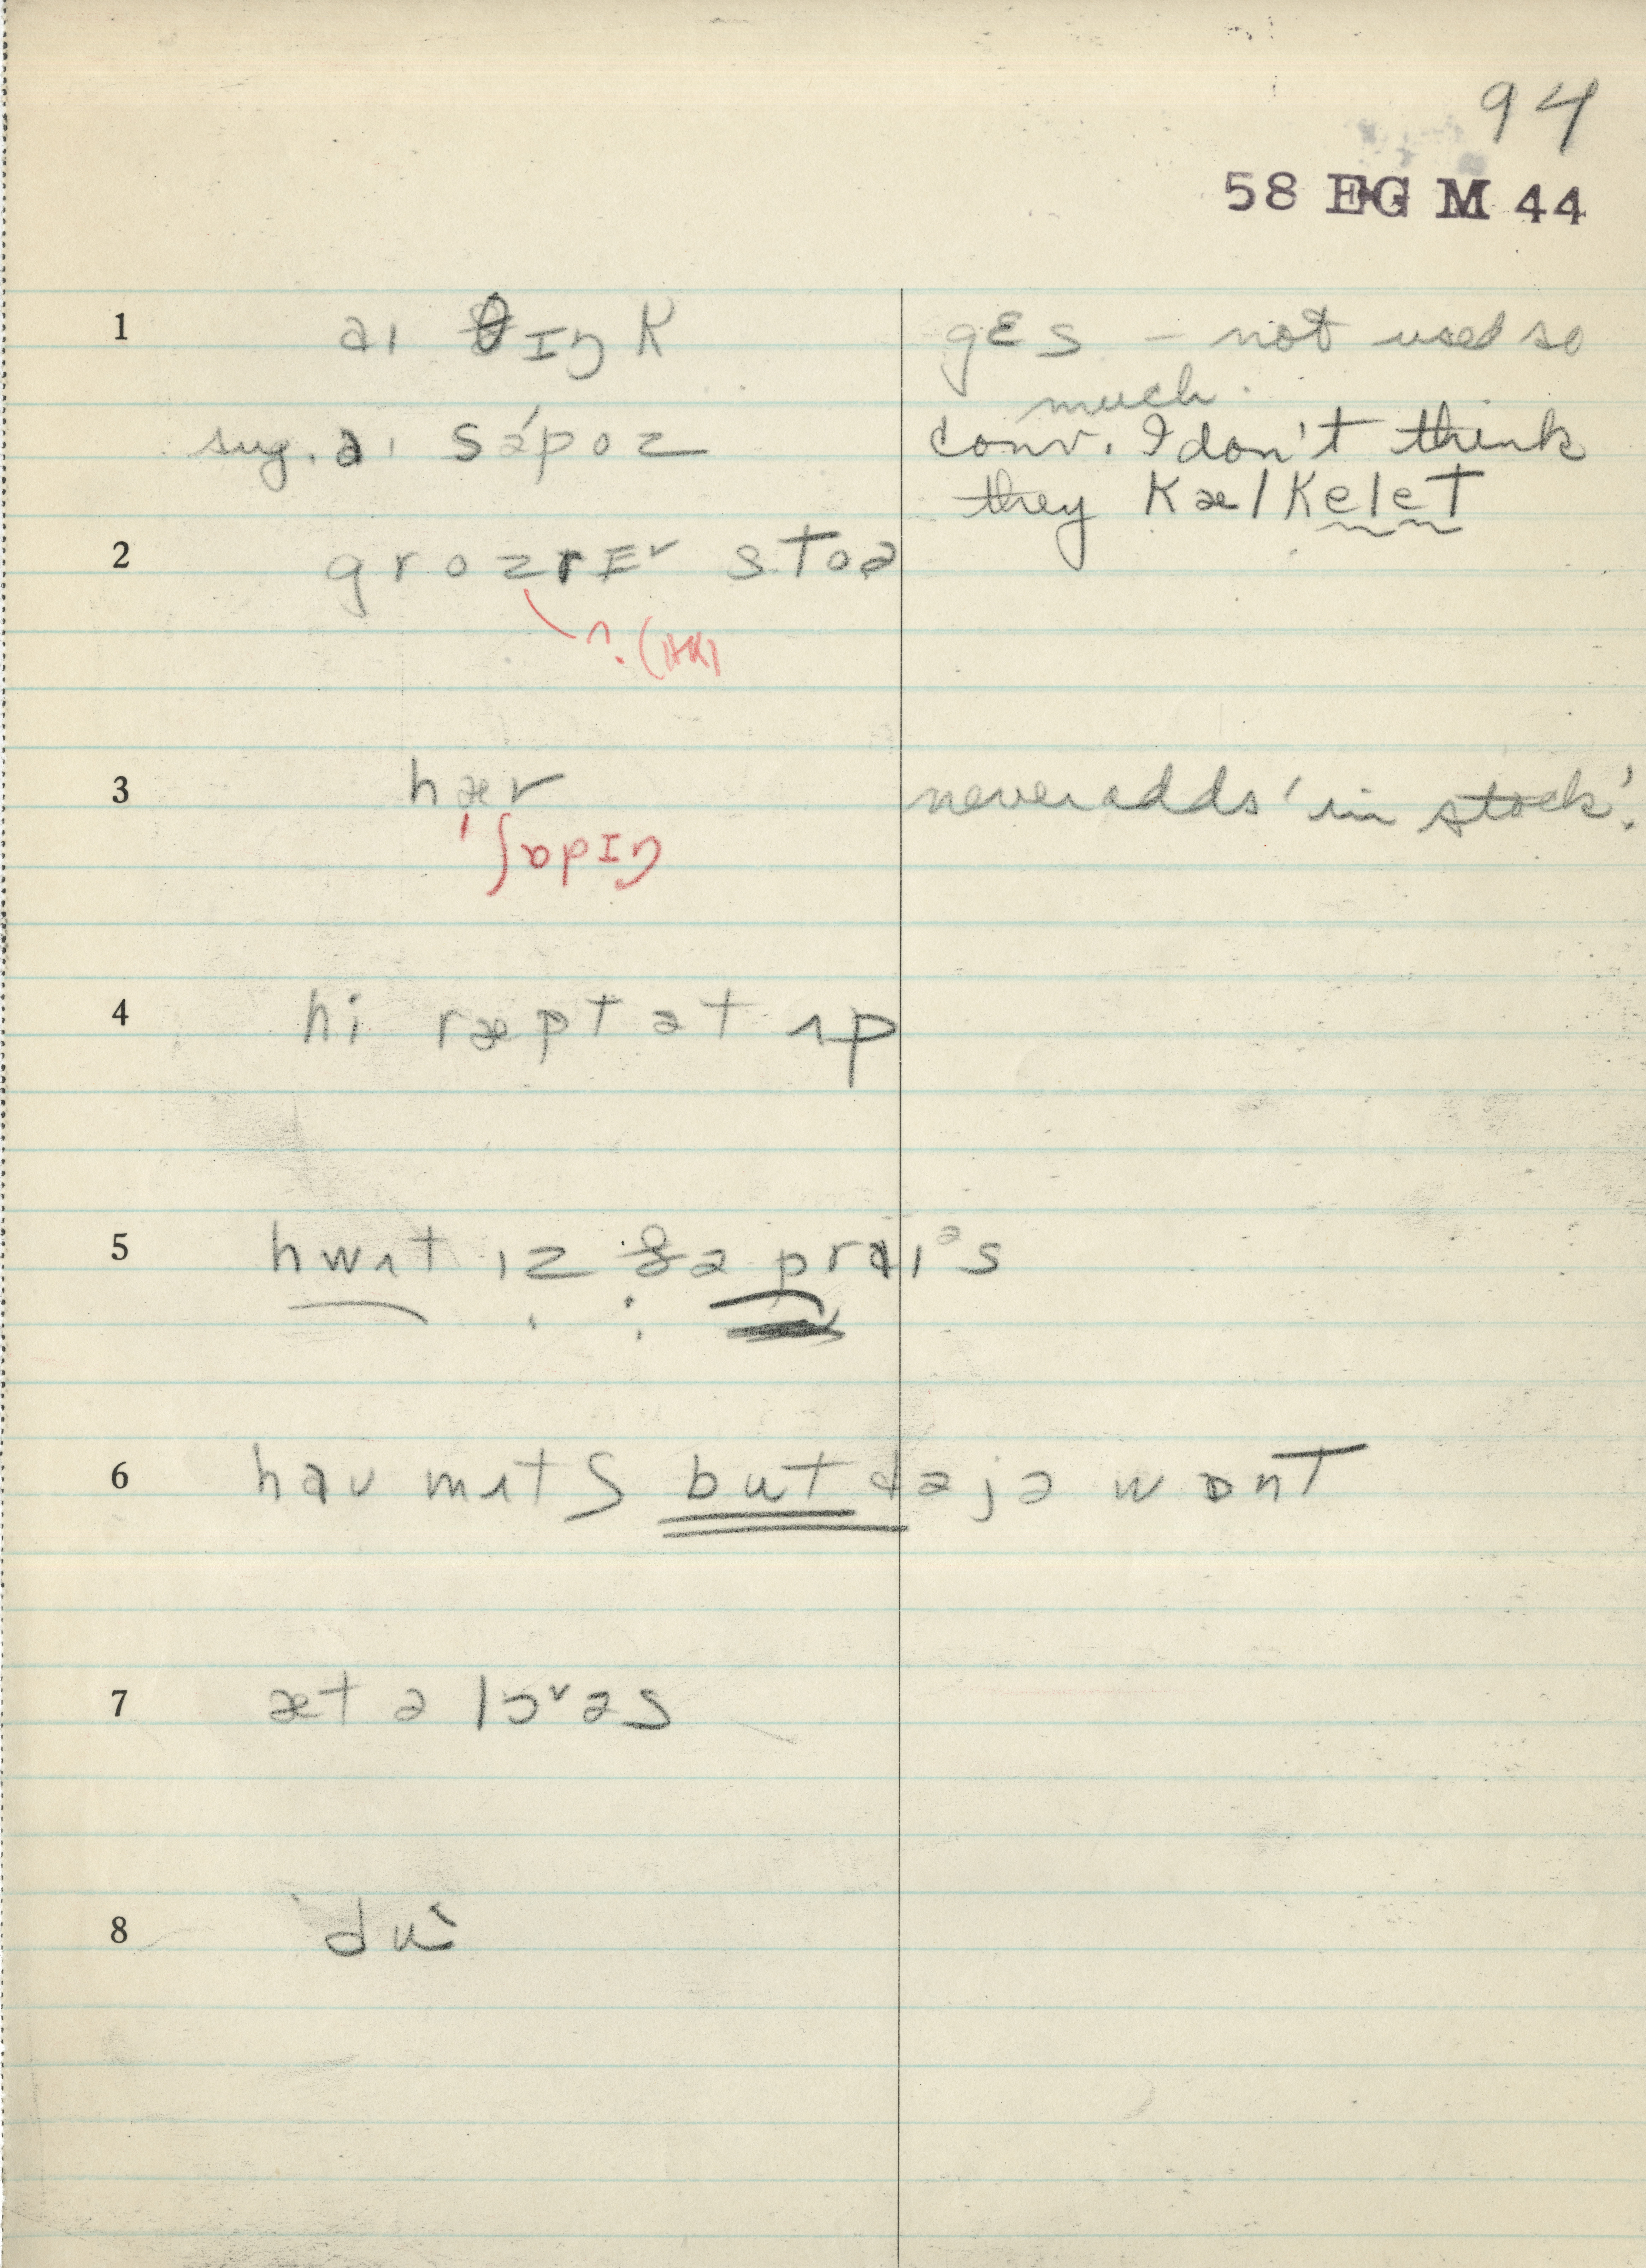 94
58 EG M 44
1 aɪ θɪŋk gɛs – not used so
much.
sug. aɪ səpoz conv. I don't think
they kælkelet
2 grozrɪv stoə
?
3 hæv never adds 'in stock'.
ʃɒpɪŋ
4 hi ræpt ət ʌp
5 hwʌt ɪz ðə praɪᵊs
6 haʊ mʌtʃ but dəjə wɒnt
7 æt ə lɔᵛəs
8 du